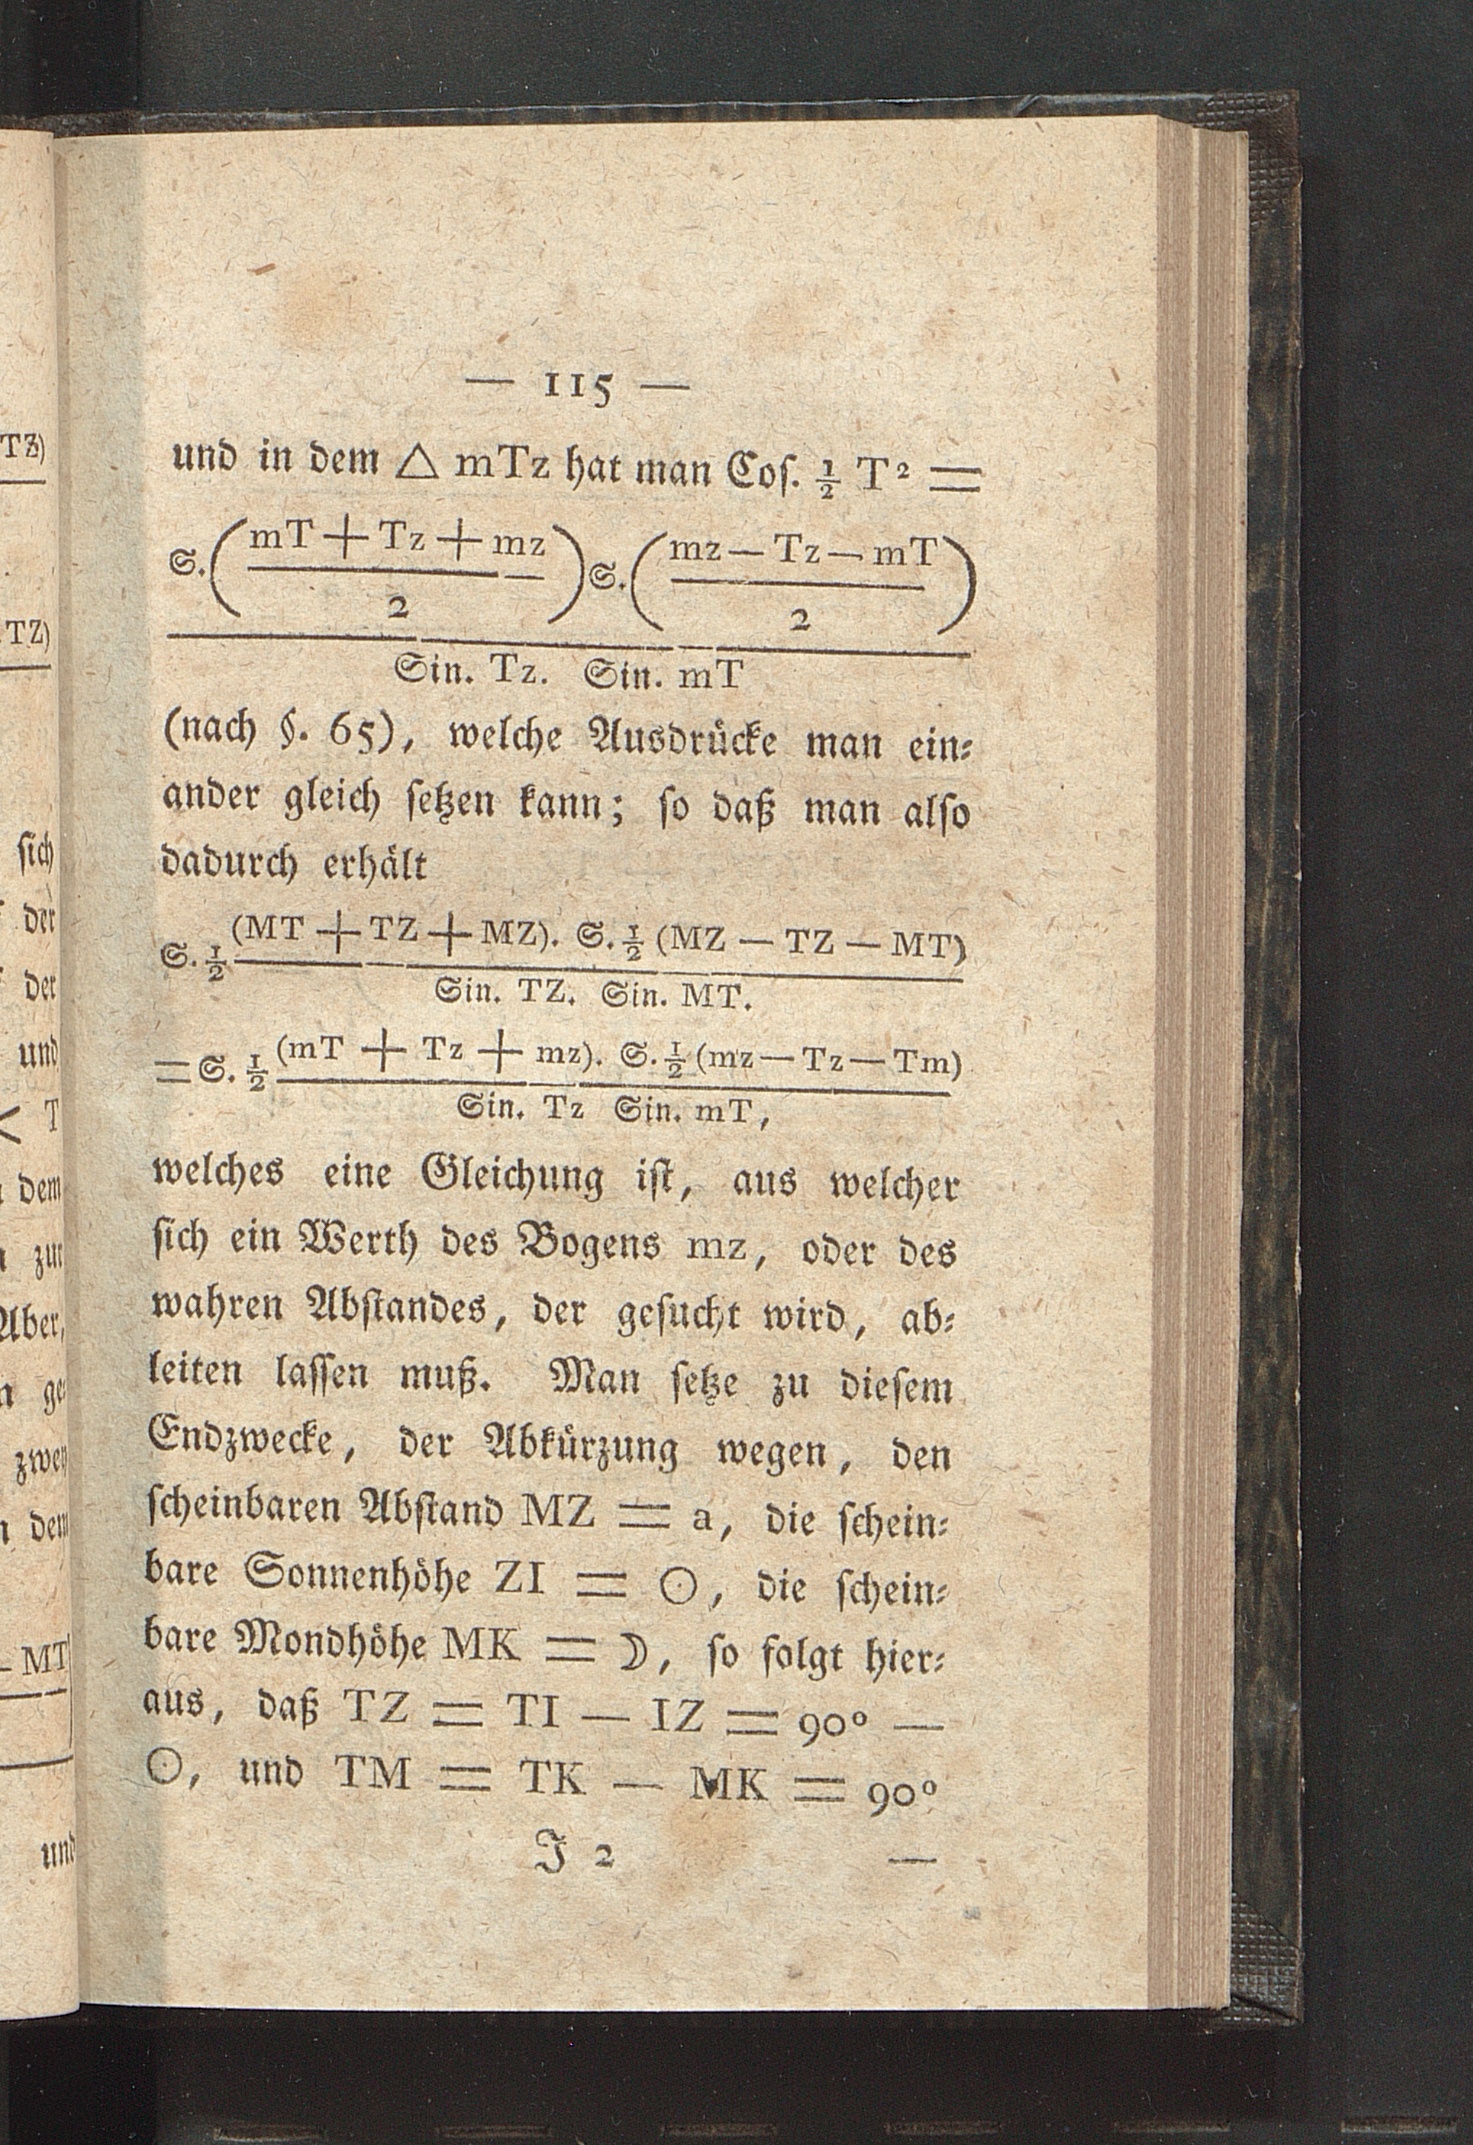 TZ)
TZ)
sich
der
der
und
< T
dem
zur
Aber,
ge
zwey
dem
— MT
und
— 115 —
und in dem △ mTz hat man Coſ. ½ T² =
S. (mT + Tz + mz / 2) S. (mz — Tz — mT / 2)
Sin. Tz. Sin. mT
(nach §. 65), welche Ausdrücke man ein⸗
ander gleich ſetzen kann; ſo daß man alſo
dadurch erhält
S. ½ (MT + TZ + MZ). S. ½ (MZ — TZ — MT)
Sin. TZ. Sin. MT.
= S. ½ (mT + Tz + mz). S. ½ (mz — Tz — Tm)
Sin. Tz Sin. mT,
welches eine Gleichung iſt, aus welcher
ſich ein Werth des Bogens mz, oder des
wahren Abſtandes, der geſucht wird, ab⸗
leiten laſſen muß. Man ſetze zu dieſem
Endzwecke, der Abkürzung wegen, den
ſcheinbaren Abſtand MZ = a, die ſchein⸗
bare Sonnenhöhe ZI = ☉, die ſchein⸗
bare Mondhöhe MK = ☽, ſo folgt hier⸗
aus, daß TZ = TI — IZ = 90° —
☉, und TM = TK — MK = 90°
J 2 —